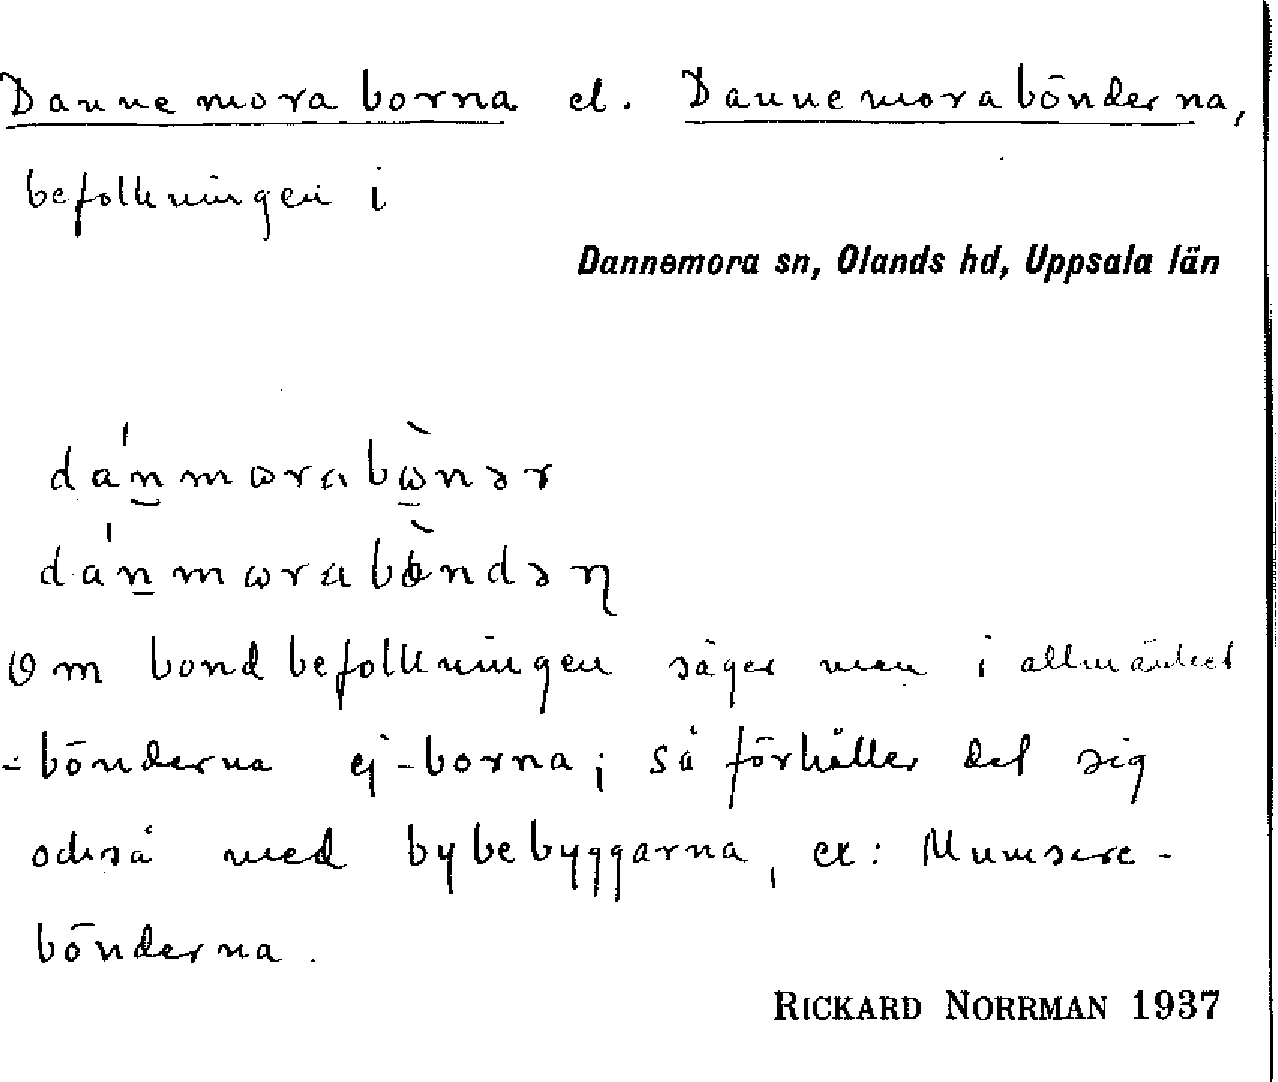 Dannemoraborna el. Dannemorabönderna,
befolkningen i
Dannemora sn, Olands hd, Uppsala län
dánmωrabὼnər
dánmωrabø̀ndəɳ
Om bondbefolkningen säger man i allmänhet
-bönderna ej -borna; så förhåller det sig
också med bybebyggarna, ex:
bönderna.
RICKARD NORRMAN 1937